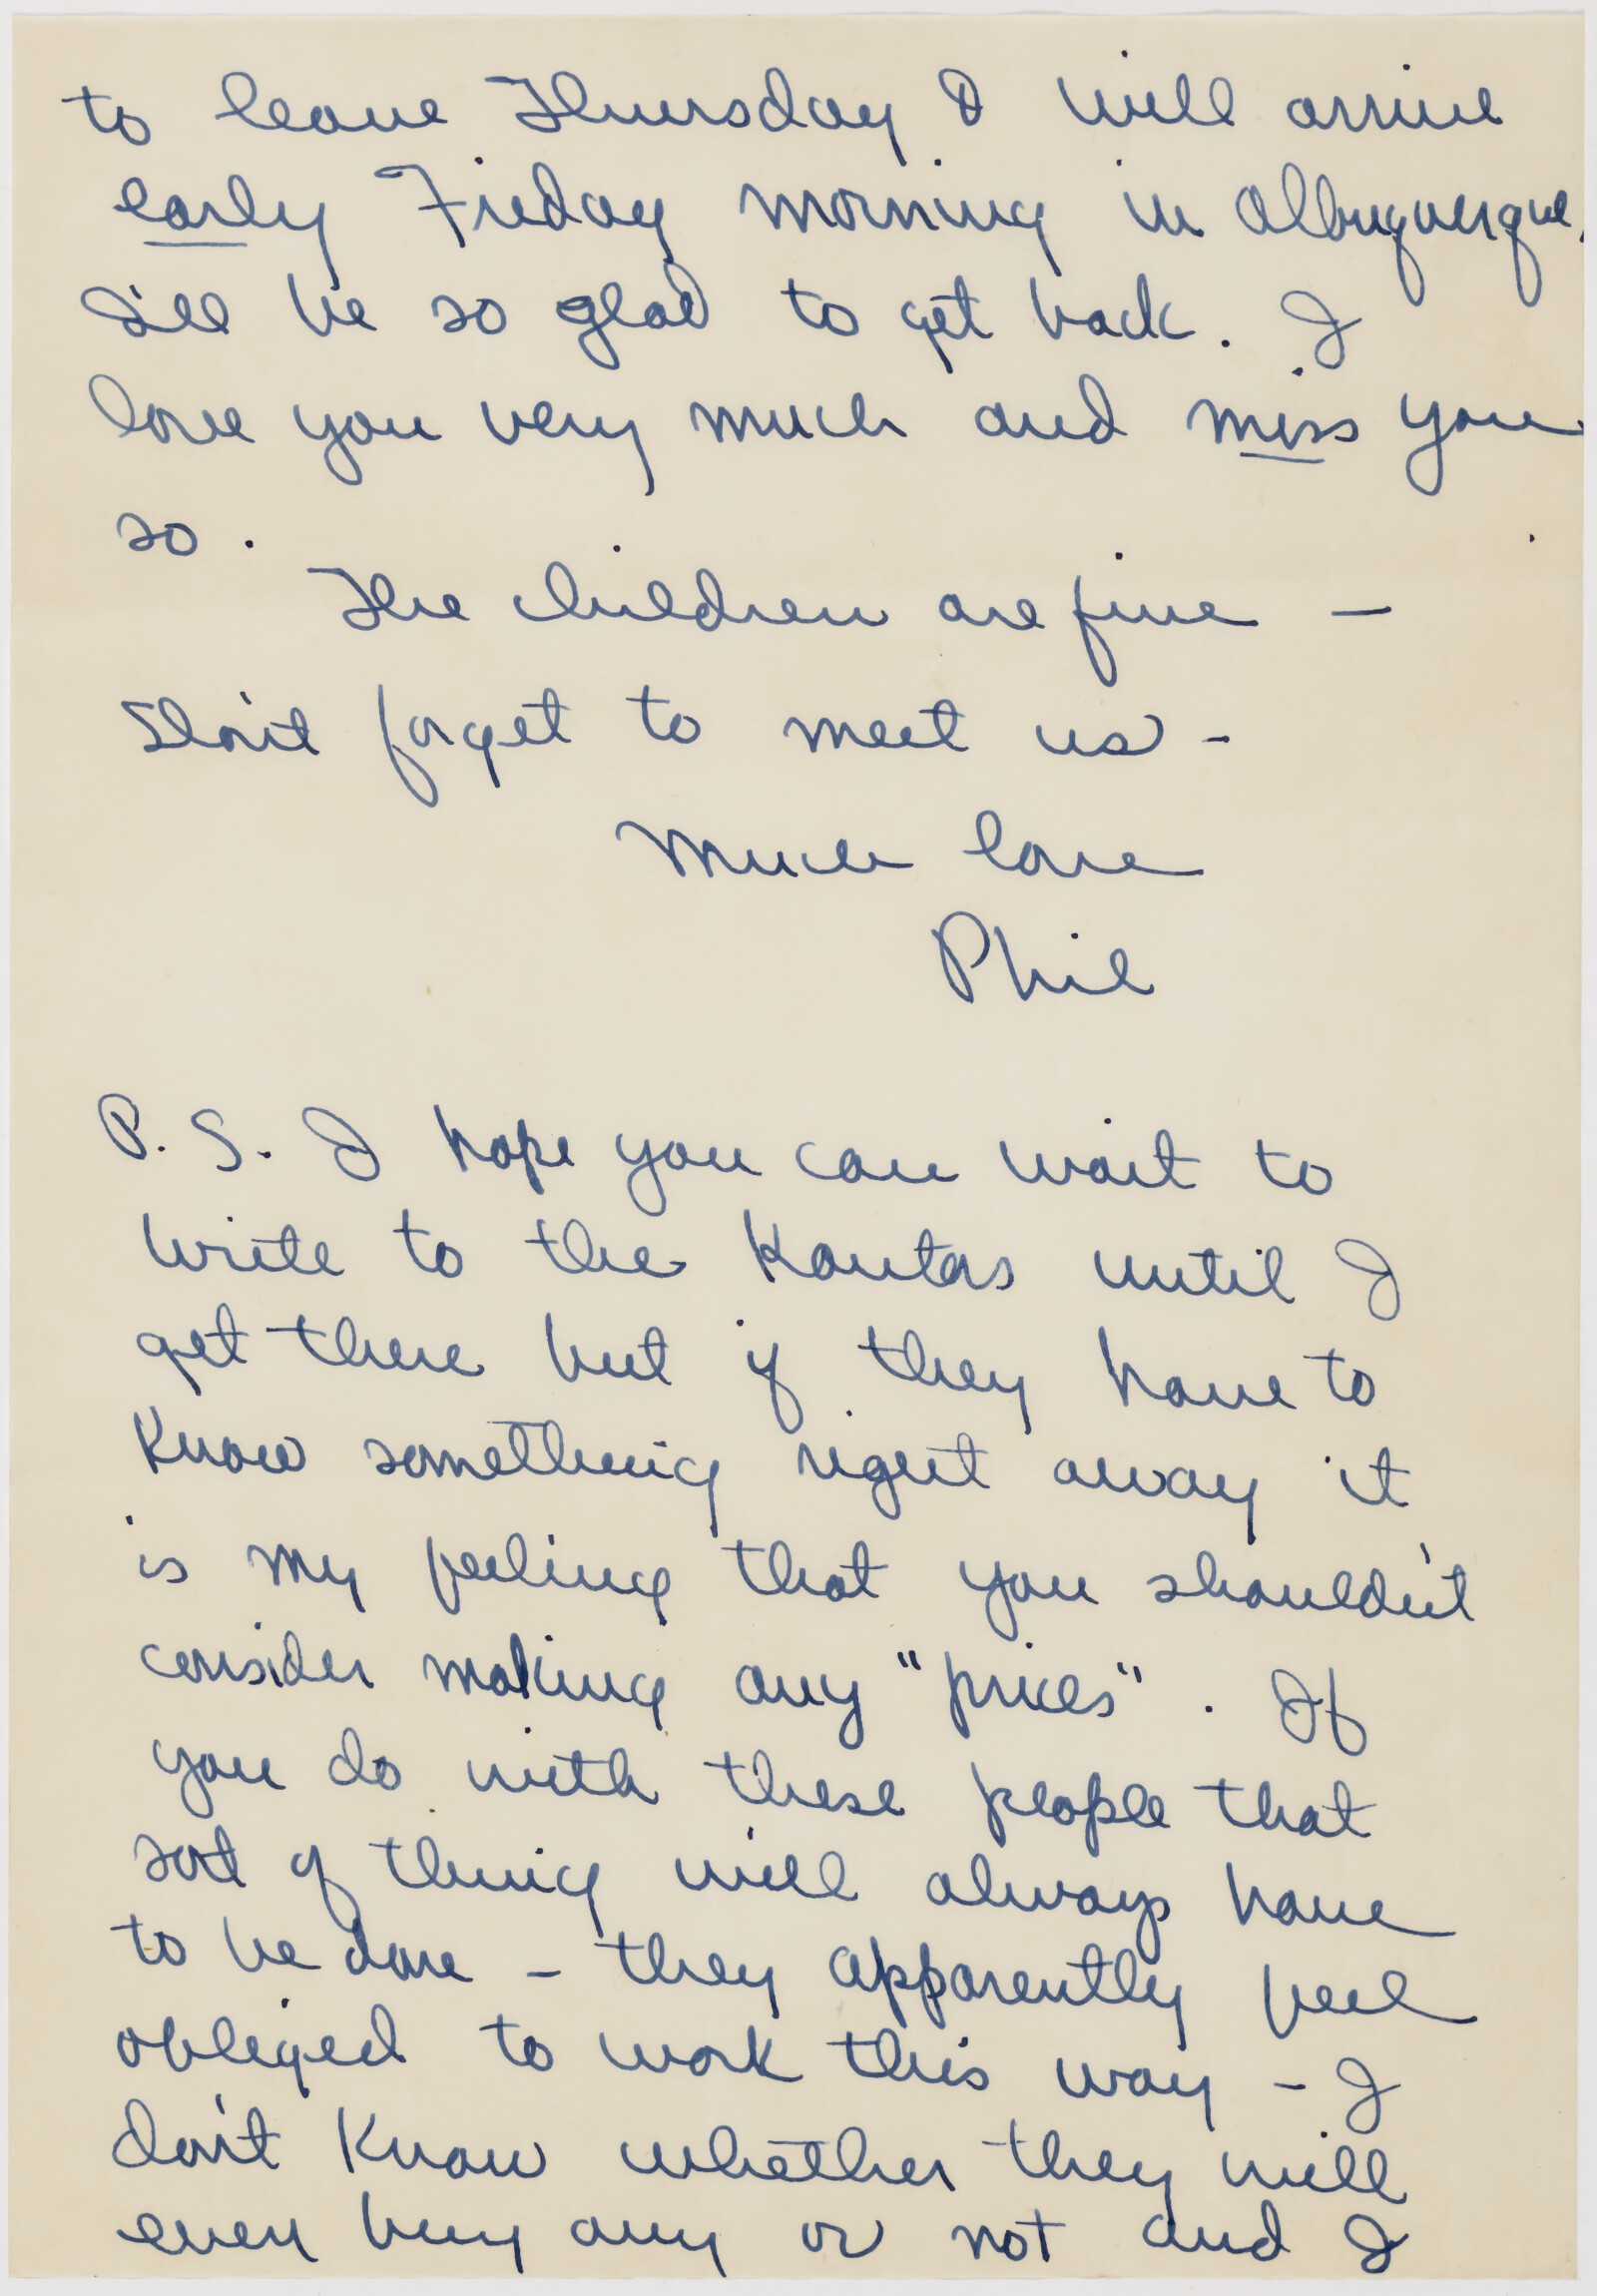 to leave Thursday & will arrive
early Friday morning in Albuquerque.
I'll be so glad to get back. I
love you very much and miss you
so.
The children are fine —
Don't forget to meet us -
Much love
Phil
P. S. I hope you can wait to
write to the Kantas until I
get there but if they have to
know something right away it
is my feeling that you shouldn't
consider making any "prices". If
you do with these people that
sort of thing will always have
to be done - they apparently feel
obliged to work this way - I
don't know whether they will
ever buy any or not and I